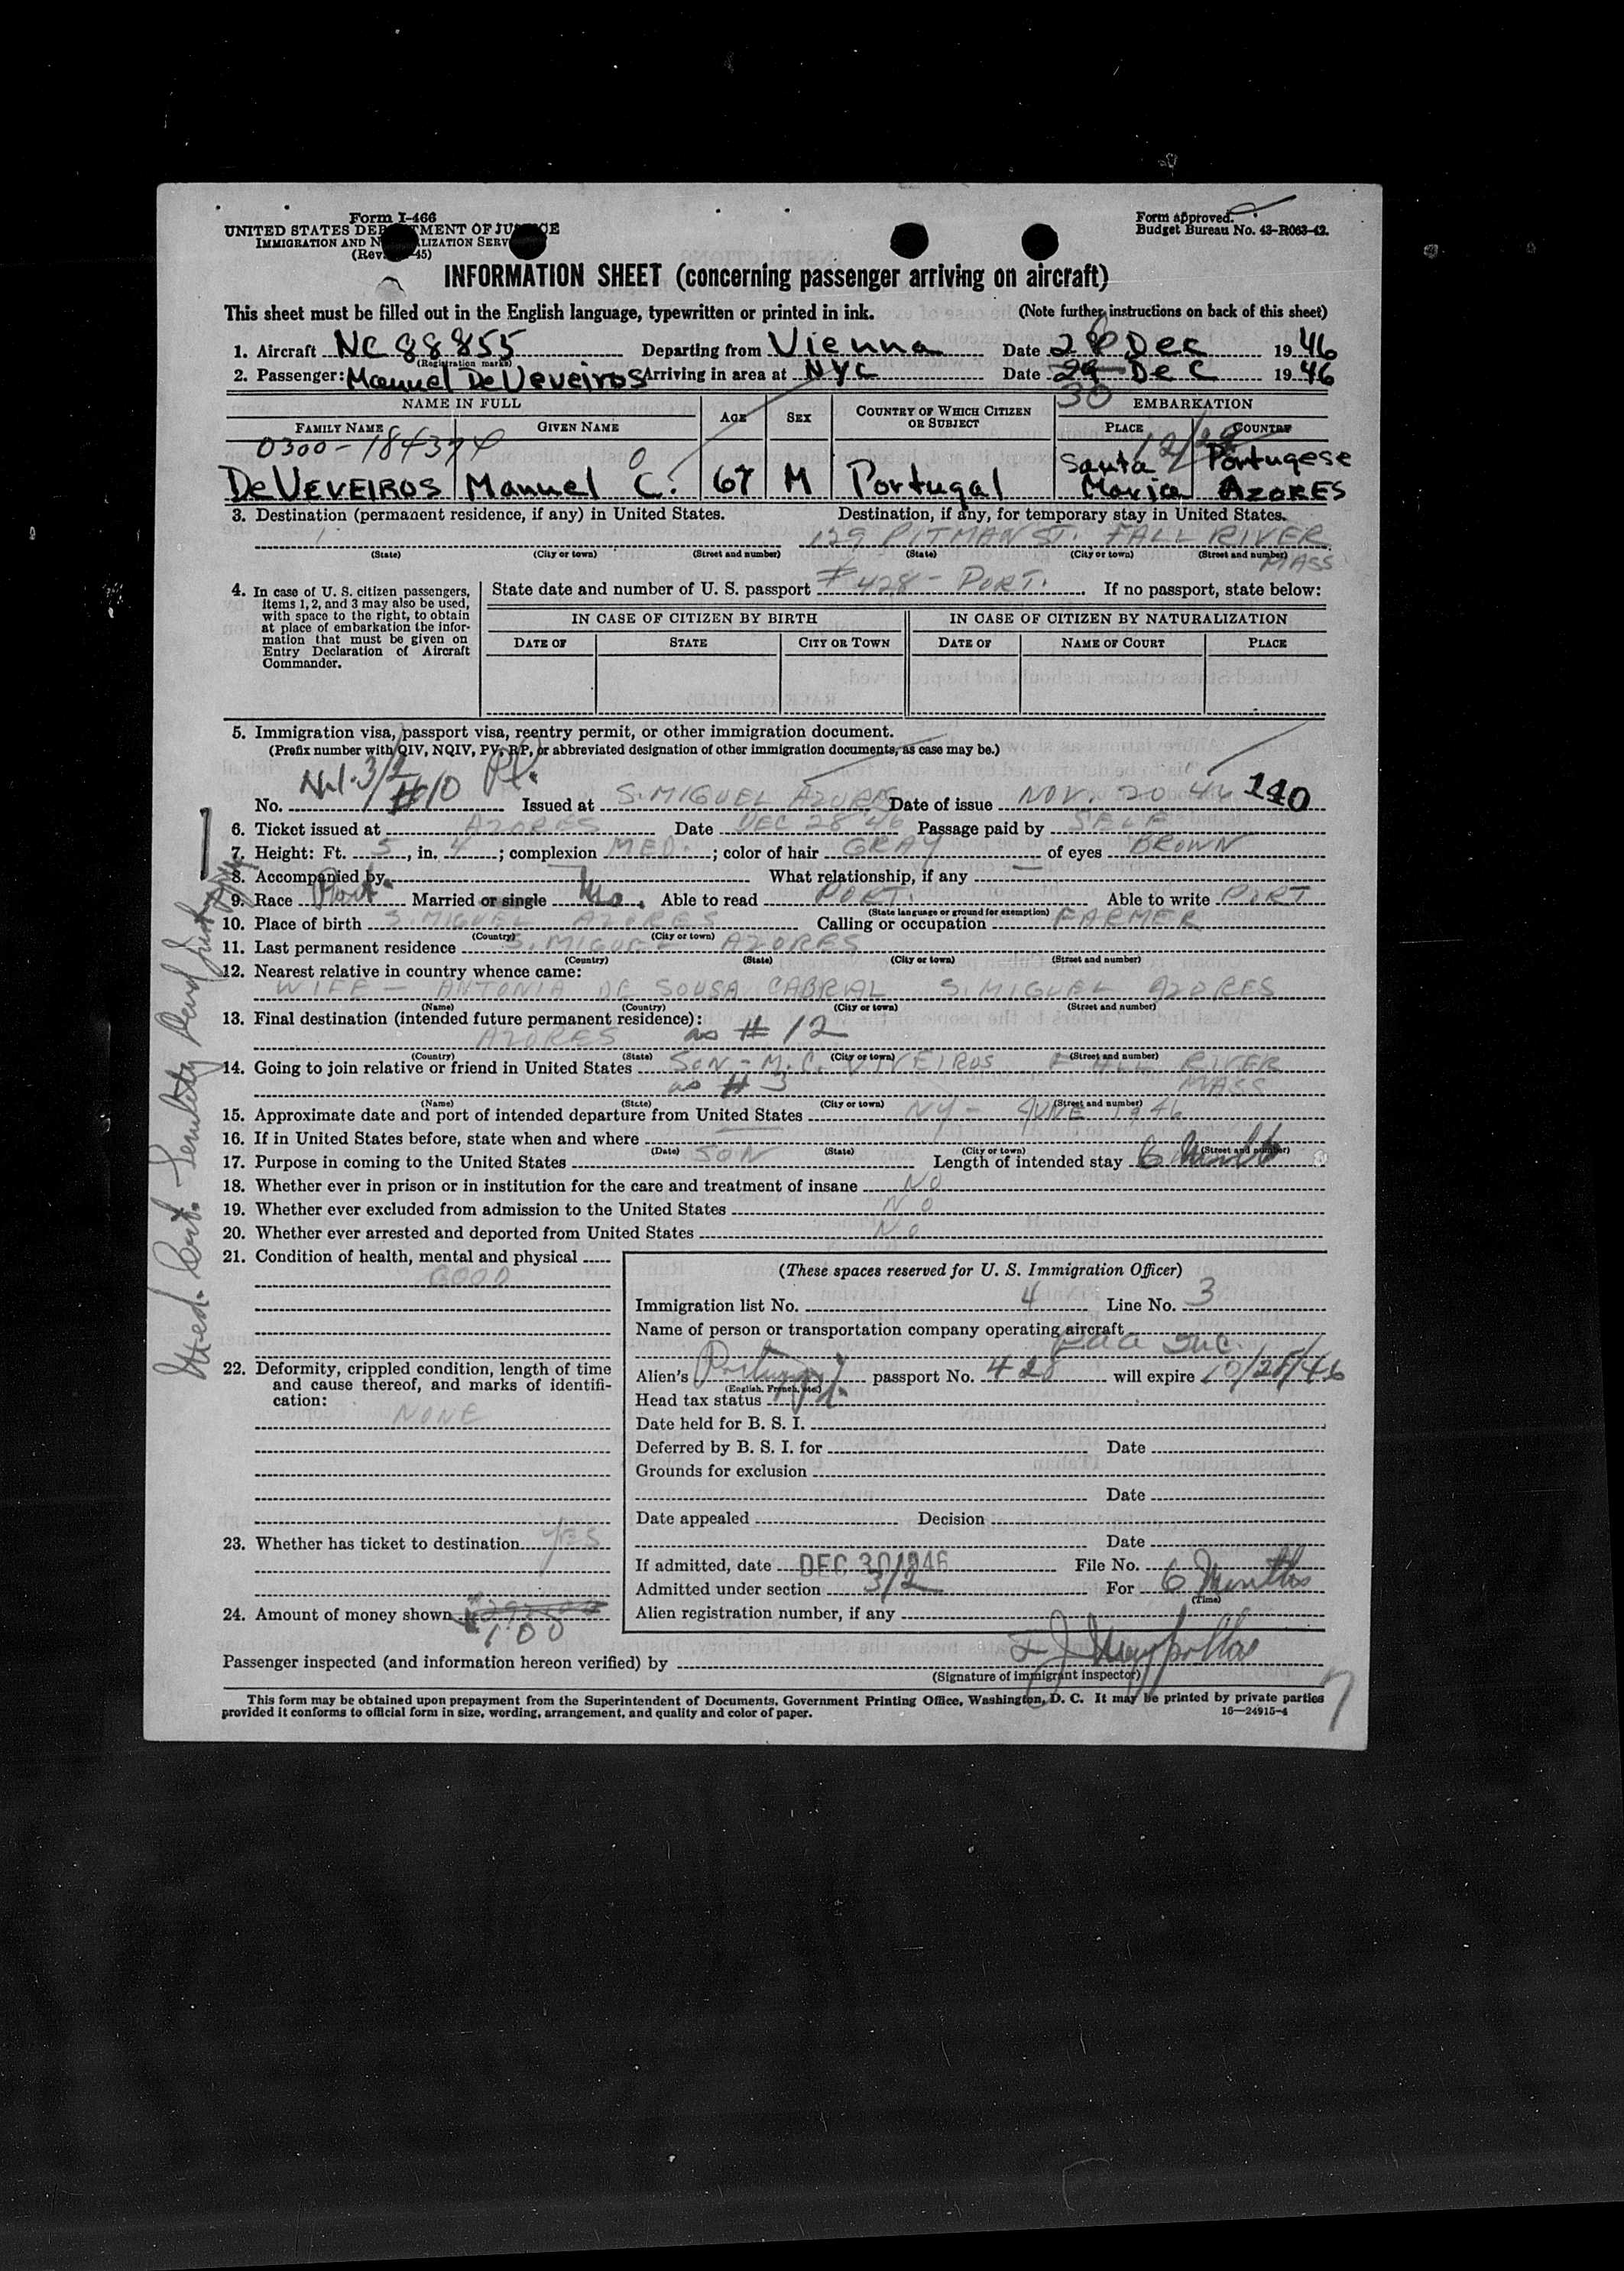 Form I-466
UNITED STATES DEPARTMENT OF JUSTICE
IMMIGRATION AND NATURALIZATION SERVICE
(Rev. -45)
Form approved.
Budget Bureau No. 43-R063-42.
INFORMATION SHEET (concerning passenger arriving on aircraft)
This sheet must be filled out in the English language, typewritten or printed in ink. (Note further instructions on back of this sheet)
1. Aircraft NC 88855 Departing from Vienna Date 28 Dec 1946
(Registration marks)
2. Passenger: Manuel DeVeveiros Arriving in area at NYC Date 29 Dec 1946
30
NAME IN FULL AGE SEX COUNTRY OF WHICH CITIZEN OR SUBJECT EMBARKATION
FAMILY NAME GIVEN NAME PLACE COUNTRY
0300-184374 12/28
DeVEVEIROS Manuel C. 67 M Portugal Santa Maria Portugese AZORES
3. Destination (permanent residence, if any) in United States. Destination, if any, for temporary stay in United States.
129 PITMAN ST. FALL RIVER
(State) (City or town) (Street and number) (State) (City or town) (Street and number)
MASS
4. In case of U. S. citizen passengers, items 1, 2, and 3 may also be used, with space to the right, to obtain at place of embarkation the information that must be given on Entry Declaration of Aircraft Commander.
State date and number of U. S. passport #428 - PORT. If no passport, state below:
IN CASE OF CITIZEN BY BIRTH IN CASE OF CITIZEN BY NATURALIZATION
DATE OF STATE CITY OR TOWN DATE OF NAME OF COURT PLACE
5. Immigration visa, passport visa, reentry permit, or other immigration document.
(Prefix number with QIV, NQIV, PV, RP, or abbreviated designation of other immigration documents, as case may be.)
3/2
No. #10 Issued at S. MIGUEL AZORES Date of issue NOV. 20 46 140
6. Ticket issued at AZORES Date DEC 28 46 Passage paid by SELF
7. Height: Ft. 5, in. 4; complexion MED.; color of hair GRAY of eyes BROWN
8. Accompanied by — What relationship, if any —
9. Race Port. Married or single Mo. Able to read PORT. Able to write PORT
(State language or ground for exemption)
10. Place of birth S. MIGUEL AZORES Calling or occupation FARMER
(Country) (City or town)
11. Last permanent residence S. MIGUEL AZORES
(Country) (State) (City or town) (Street and number)
12. Nearest relative in country whence came:
WIFE - ANTONIA DE SOUSA CABRIAL S. MIGUEL AZORES
(Name) (Country) (City or town) (Street and number)
13. Final destination (intended future permanent residence):
AZORES as # 12
(Country) (State) (City or town) (Street and number)
14. Going to join relative or friend in United States SON - M. C. VIVEIROS FALL RIVER
as # 3 MASS
(Name) (State) (City or town) (Street and number)
15. Approximate date and port of intended departure from United States NY - JUNE 1946
16. If in United States before, state when and where
(Date) (State) (City or town) (Street and number)
17. Purpose in coming to the United States SON Length of intended stay 6 Months
18. Whether ever in prison or in institution for the care and treatment of insane NO
19. Whether ever excluded from admission to the United States NO
20. Whether ever arrested and deported from United States NO
21. Condition of health, mental and physical
GOOD
22. Deformity, crippled condition, length of time and cause thereof, and marks of identification:
NONE
23. Whether has ticket to destination YES
24. Amount of money shown
100
(These spaces reserved for U. S. Immigration Officer)
Immigration list No. 4 Line No. 3
Name of person or transportation company operating aircraft
Paa Inc.
Alien's passport No. 428 will expire 12/28/46
(English, French, etc.)
Head tax status
Date held for B. S. I.
Deferred by B. S. I. for Date
Grounds for exclusion
Date
Date appealed Decision
Date
If admitted, date DEC 30 1946 File No.
Admitted under section 3/2 For 6 Months
(Time)
Alien registration number, if any
Passenger inspected (and information hereon verified) by
(Signature of immigrant inspector)
This form may be obtained upon prepayment from the Superintendent of Documents, Government Printing Office, Washington, D. C. It may be printed by private parties
provided it conforms to official form in size, wording, arrangement, and quality and color of paper. 16—24915-4
Med. Cert. Senility